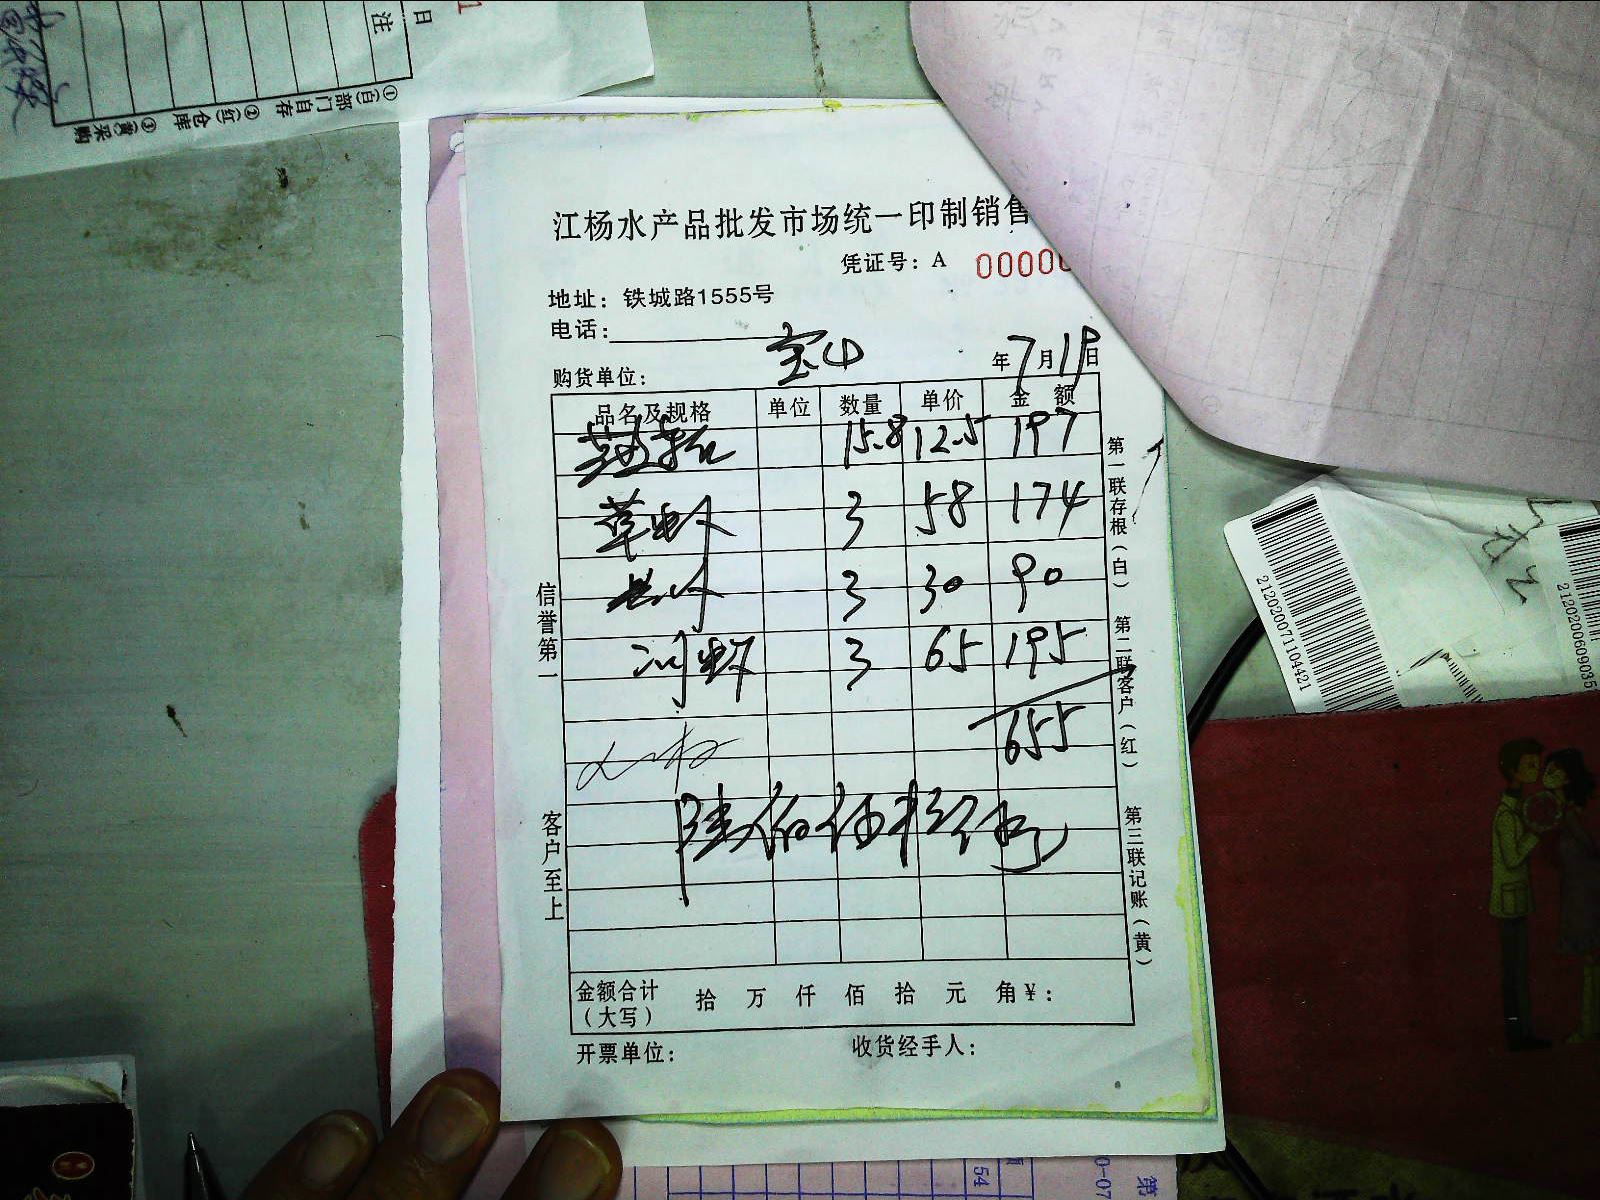 日
注
①(白)部门自存 ②(红)仓库 ③(黄)采购
江杨水产品批发市场统一印制销售
凭证号：A 0000
地址：铁城路1555号
电话：
宝山
购货单位：
年7月19日
品名及规格 单位 数量 单价 金额
15.8 12.5 197
草虾 3 58 174
3 30 90
河虾 3 65 195
655
陆佰伍拾伍元
金额合计（大写） 拾 万 仟 佰 拾 元 角 ¥：
开票单位： 收货经手人：
信誉第一
客户至上
第一联存根（白）
第二联客户（红）
第三联记账（黄）
2120200711044421
2120200609035
54
0-07
第